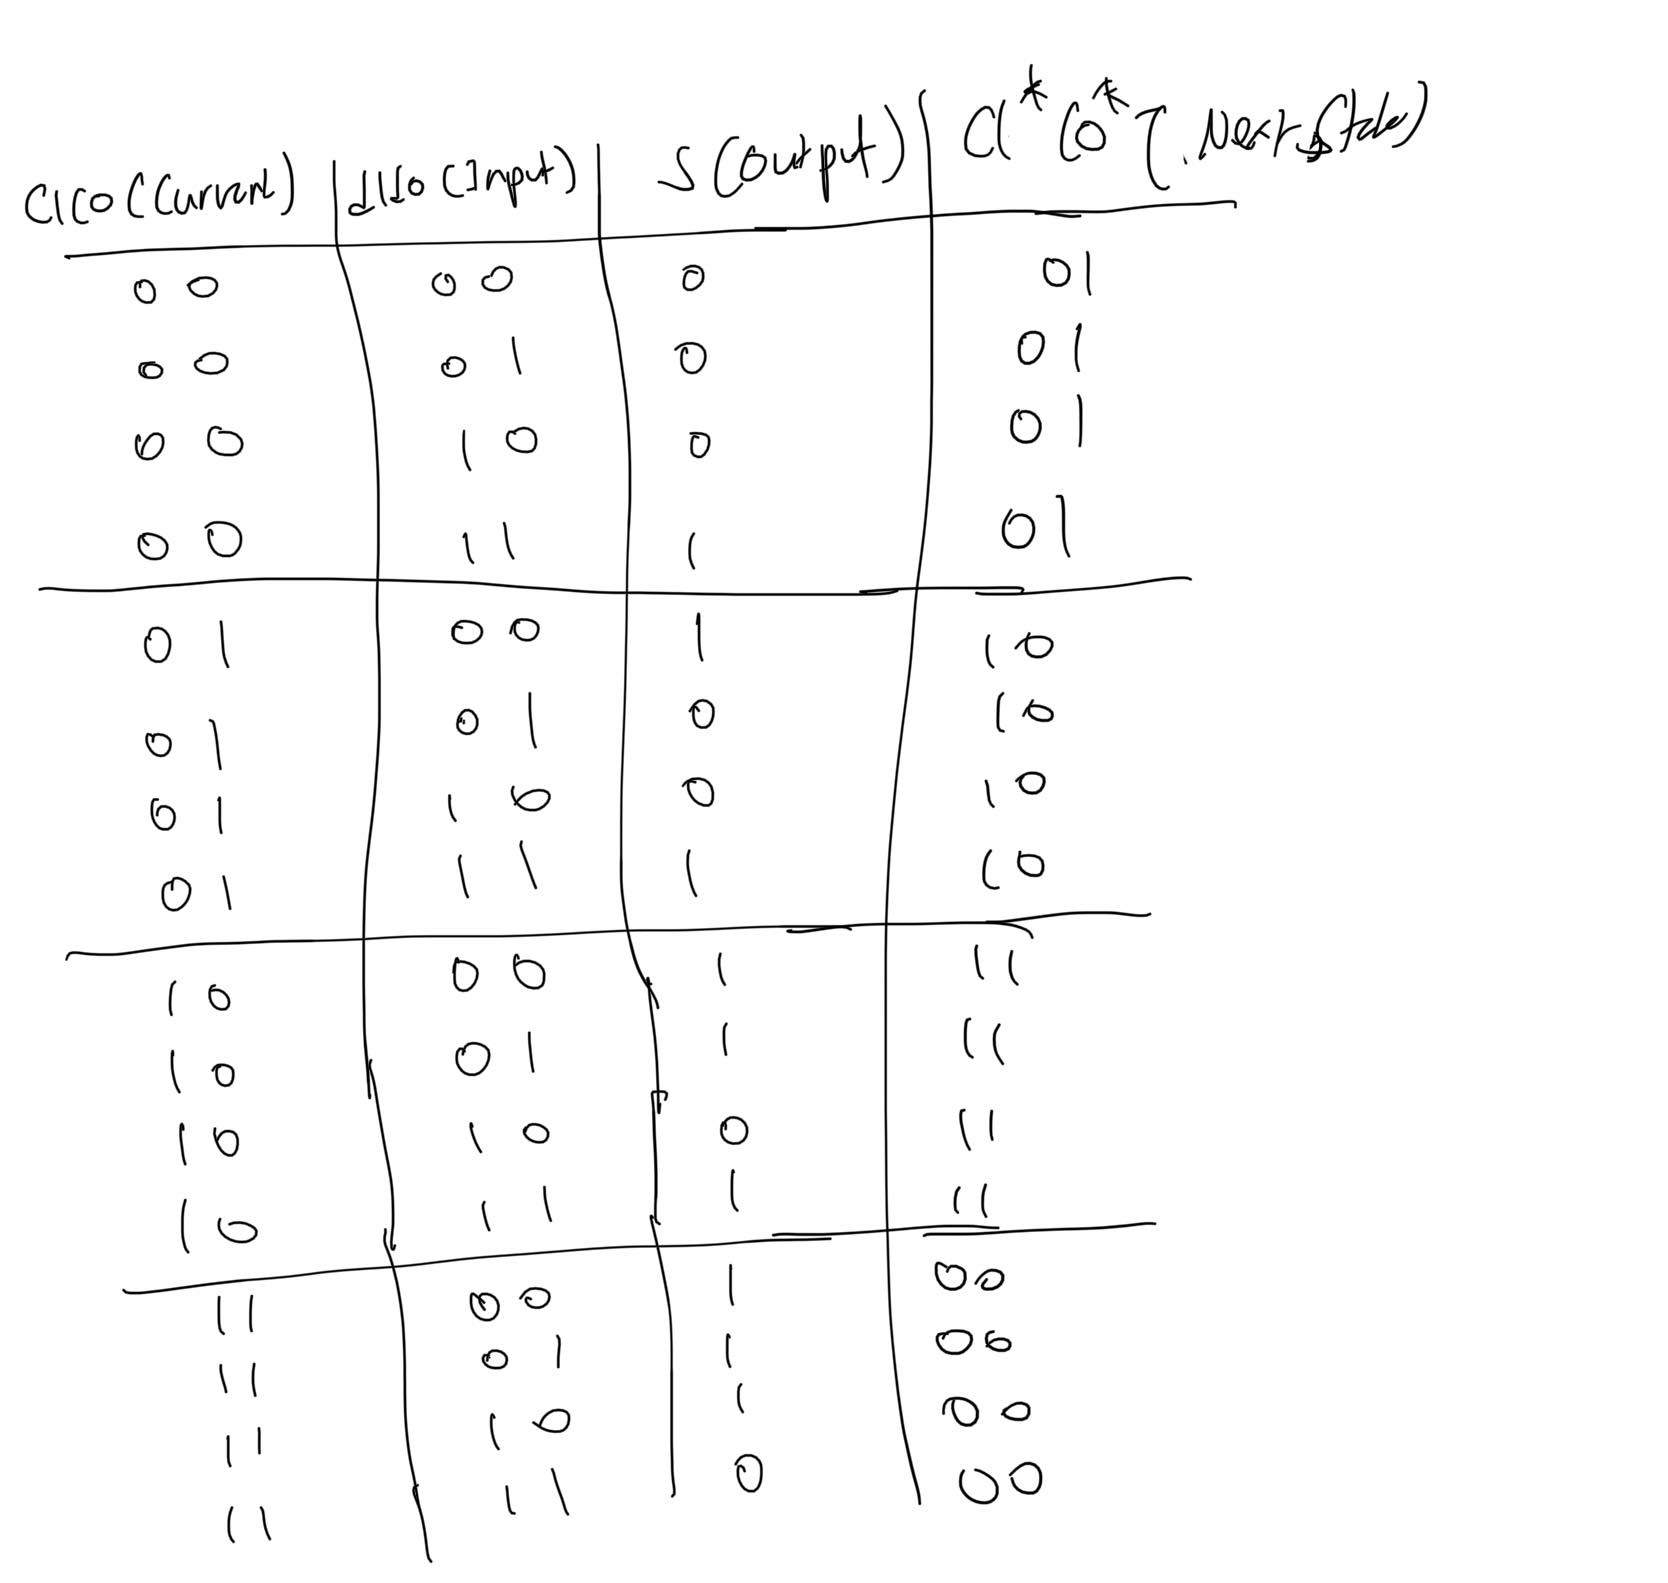 C1C0 (Current) d1d0 (Input) S (Output) C1* C0* (Next State)
0 0 0 0 0 01
0 0 0 1 0 0 1
0 0 1 0 0 0 1
0 0 1 1 1 0 1
0 1 0 0 1 1 0
0 1 0 1 0 1 0
0 1 1 0 0 1 0
0 1 1 1 1 1 0
1 0 0 0 1 1 1
1 0 0 1 1 1 1
1 0 1 0 0 1 1
1 0 1 1 1 1 1
1 1 0 0 1 00
1 1 0 1 1 00
1 1 1 0 1 0 0
1 1 1 1 0 00